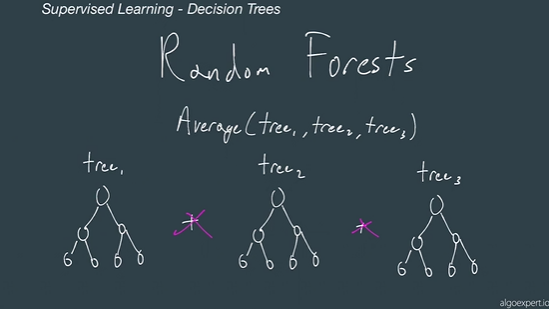 Supervised Learning - Decision Trees
Random Forests
Average(tree₁, tree₂, tree₃)
tree₁ tree₂ tree₃
+ +
algoexpert.io